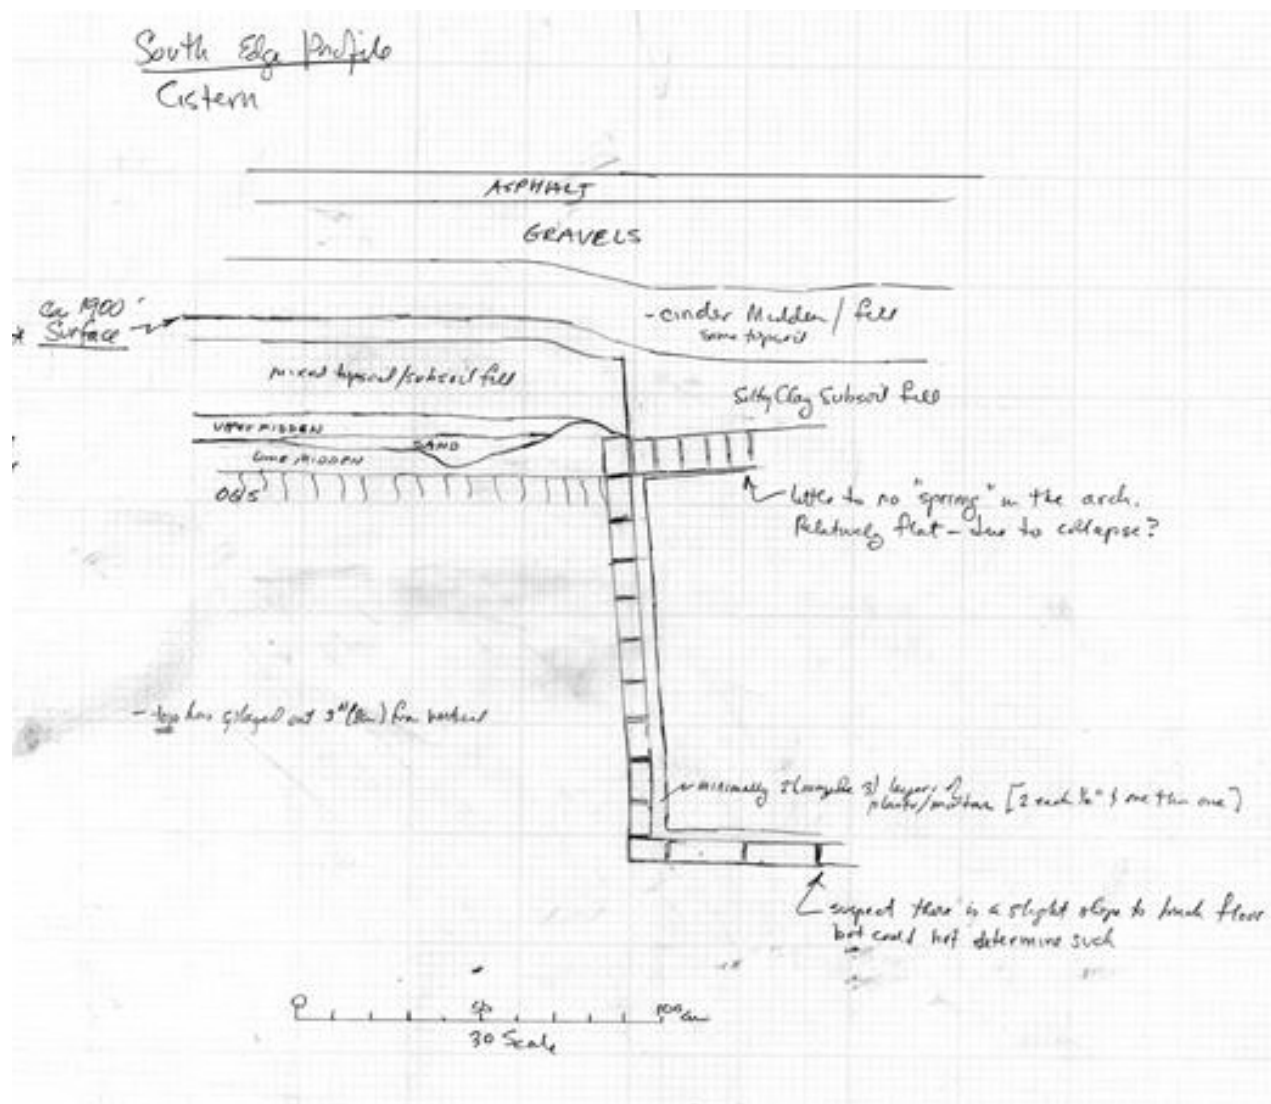 South Edge Profile
Cistern
ASPHALT
GRAVELS
ca 1900
Surface
- cinder Midden / fill
some topsoil
mixed topsoil/subsoil fill
Silty Clay Subsoil fill
UPPER MIDDEN
SAND
MIDDEN
OG/S
little to no "spring" in the arch.
Relatively flat - due to collapse?
- top has splayed out 3" (8cm) from vertical
minimally 2 (maybe 3) layers of
plaster/mortar [2 each ½" & one thin one]
suspect there is a slight slope to brick floor
but could not determine such
0 50 100 cm
30 Scale